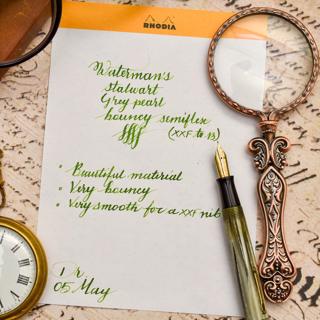 RHODIA
Waterman's
stalwart
Grey pearl
bouncy semiflex
(XXF to 1B)
• Beautiful material
• Very bouncy
• Very smooth for a XXF nib
05 May